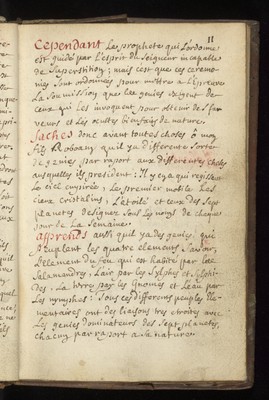 11
Cependant les prophetes qui l'ordonne
est guidé par l'esprit du Seigneur incapable
de Superstition; mais c'est que ces ceremo-
nies sont ordonnées pour mettre a l'epreuve
la soumission que les genies exigent de
ceux qui les invoquent pour obtenir des fa-
veurs et les occults bienfaits de nature.
Saches donc avant toutes choses ô mon
fils Roboam, quil y a differente sortes
de genies par raport aux differentes choses
ausquelles ils president: Il y en a qui regissent
le ciel empirée, le premier mobile Les
cieux cristalins, l'etoilé et ceux des Sept
planets designez sous les noms de chaques
jour de La Semaine.
Apprends aussi quil y a des genies, qui
peuplent les quatre elemens, Savoir,
L'element du feu qui est habité par les
Salamandres; L'air par les Sylphes et Sylphi-
des; La terre par les Gnomes et L'eau par
Les nymphes: Tous ces differens peuples Ele-
mentaires ont des liaisons tres etroites avec
Les genies dominateurs des Sept planetes,
chacun par raport a Sa nature